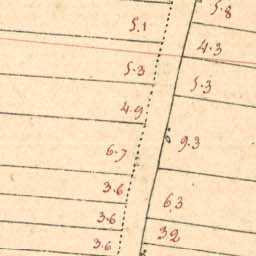 5.8
5.1
4.3
5.3
5.3
4.9
9.3
6.7
3.6
6.3
3.6
3.2
3.6